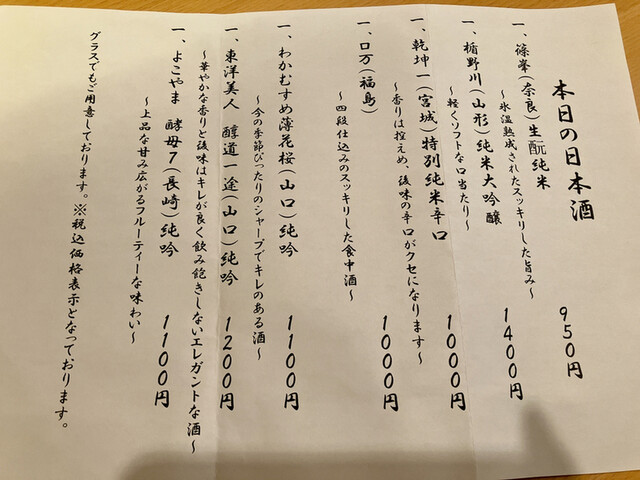 本日の日本酒
一、篠峯（奈良）生酛純米 950円
～氷温熟成されたスッキリした旨み～
一、楯野川（山形）純米大吟醸 1400円
～軽くソフトな口当たり～
一、乾坤一（宮城）特別純米辛口 1000円
～香りは控えめ、後味の辛口がクセになります～
一、口万（福島） 1000円
～四段仕込みのスッキリした食中酒～
一、わかむすめ薄花桜（山口）純吟 1100円
～今の季節ぴったりのシャープでキレのある酒～
一、東洋美人 醇道一途（山口）純吟 1200円
～華やかな香りと後味はキレが良く飲み飽きしないエレガントな酒～
一、よこやま 酵母7（長崎）純吟 1100円
～上品な甘み広がるフルーティーな味わい～
グラスでもご用意しております。※税込価格表示となっております。